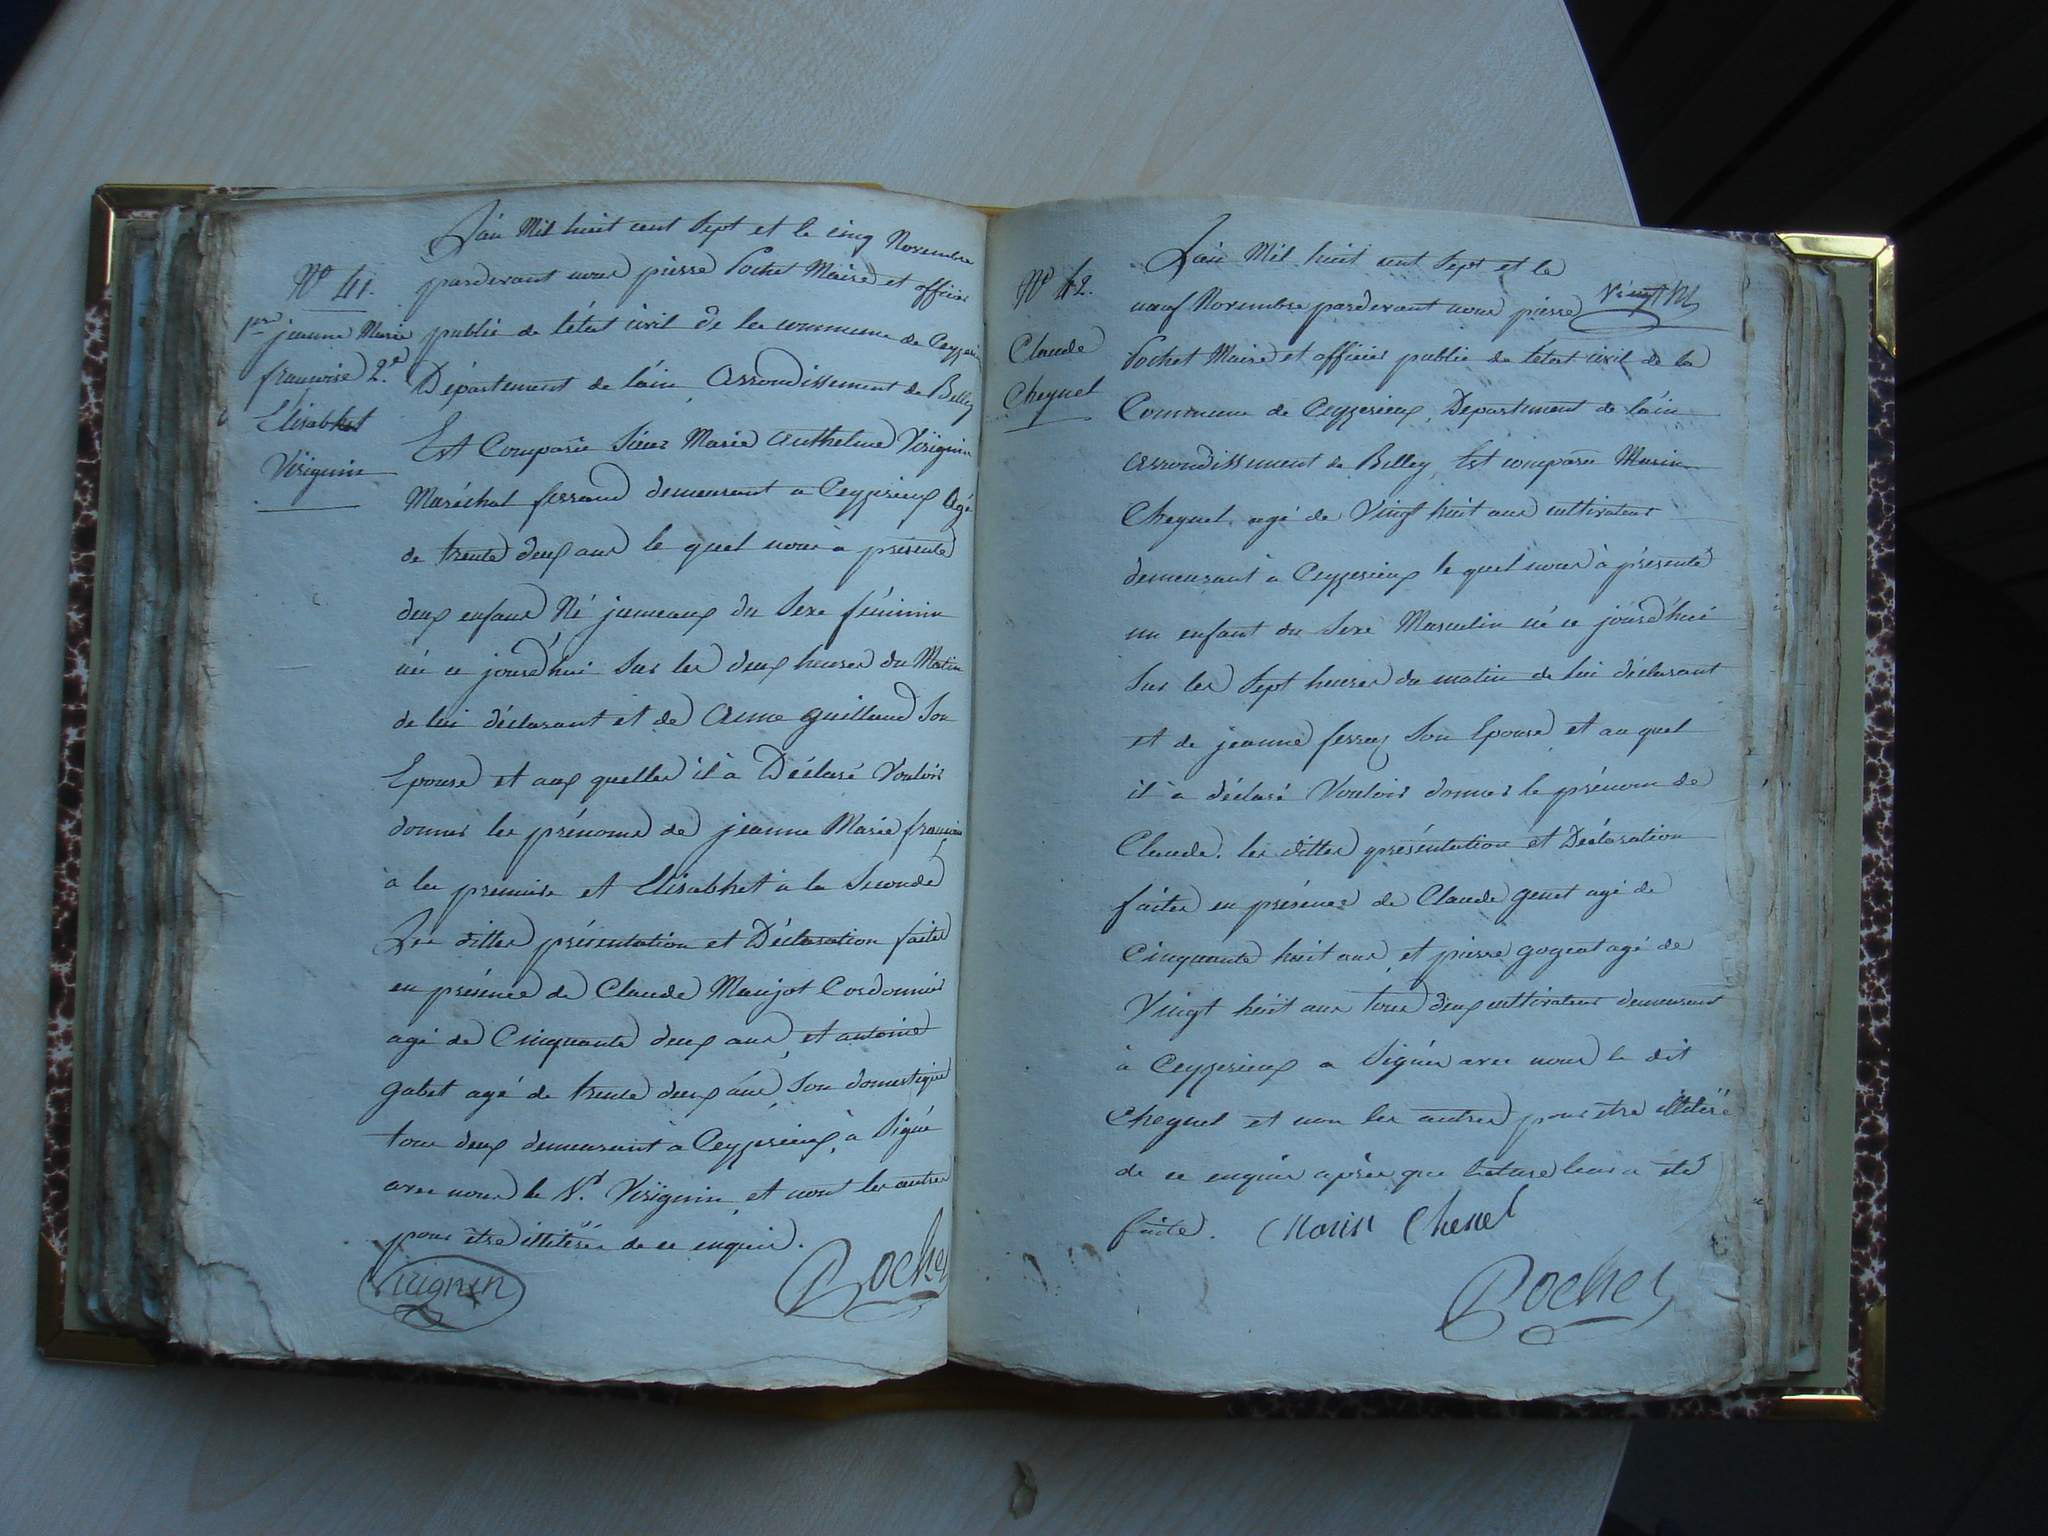 N° 41.
pre jeanne Marie
françoise 2.e
Elisabhet
Virignin
L'an Mil huit cent Sept et le cinq Novembre
pardevant nous pierre Pochet Maire et officier
publié de l'état civil de la commune de Ceyzerieu
Département de l'ain, Arrondissement de Belley
Est Comparu Sieur Marie Anthelme Virignin
Maréchal ferrand demeurant a Ceyzerieux Agé
de trente deux ans le quel nous a présenté
deux enfans Né jumeaux du Sexe féminin
née ce jourd'hui Sur les deux heures du Matin
de lui déclarant et de Anne guilland Son
Epouse et aux quelles il à Déclaré Vouloir
donner les prénoms de jeanne Marie françoise
à la premiere et Elisabhet à la Seconde
Les dittes présentation et Déclaration faites
en présence de Claude Manjot Cordonnier
agé de Cinquante deux ans, et antoine
gabet agé de trente deux ans, Son domestique
tous deux demeurant à Ceyzerieux, à Signé
avec nous le S.r Virignin, et nont les autres
pour être illitéré de ce enquis.
Virignin
Pochet
N° 42.
Claude
Cheynel
L'ain Mil huit cent Sept et le
neuf Novembre pardevant nous pierre
vingt
Pochet Maire et officier public de l'état civil de la
Commune de Ceyzerieux, Département de l'ain
arrondissement de Belley, Est comparu Marin
Cheynel agé de Vingt huit ans cultivateur
demeurant à Ceyzerieux le quel nous à présenté
un enfant du Sexe Masculin né ce jourd'hui
Sur les Sept heures du matin de lui déclarant
et de jeanne ferraz Son Epouse, et au quel
il à déclaré Vouloir donner le prénom de
Claude. les dittes présentation et Déclaration
faites en présence de Claude genet agé de
Cinquante huit ans, et pierre gogeat agé de
Vingt huit ans tous deux cultivateur demeurant
à Ceyzerieux a Signée avec nous le dit
Cheynel et non les autres pour etre illitéré
de ce enquis après que lecture leur a été
faite. Marin Chenel
Pochet